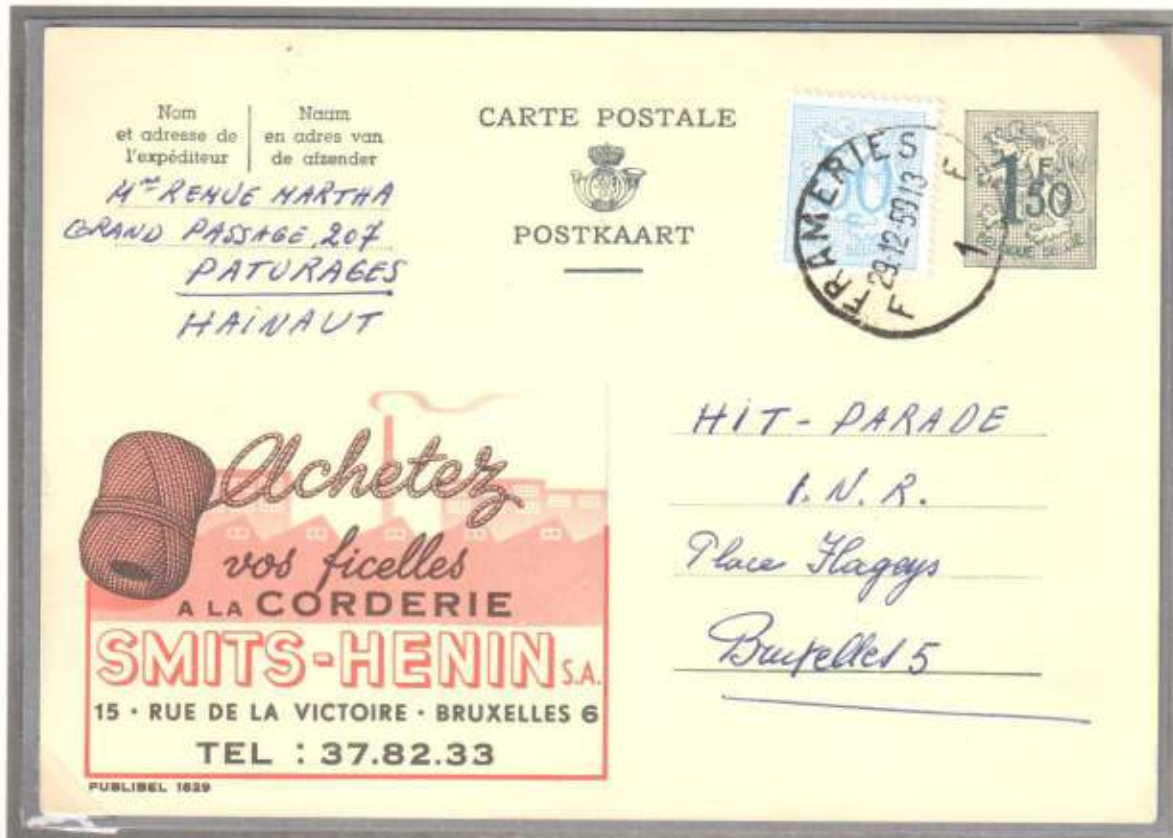 Nom
et adresse de
l'expéditeur
Naam
en adres van
de afzender
Mme REMUE MARTHA
GRAND PASSAGE, 207
PATURAGES
HAINAUT
CARTE POSTALE
POSTKAART
50
FRAMERIES
29.12-59 13
F F
1
1F50
HIT-PARADE
I.N.R.
Place Flageys
Bruxelles 5
Achetez
vos ficelles
A LA CORDERIE
SMITS-HENIN S.A.
15 · RUE DE LA VICTOIRE · BRUXELLES 6
TEL : 37.82.33
PUBLIBEL 1629